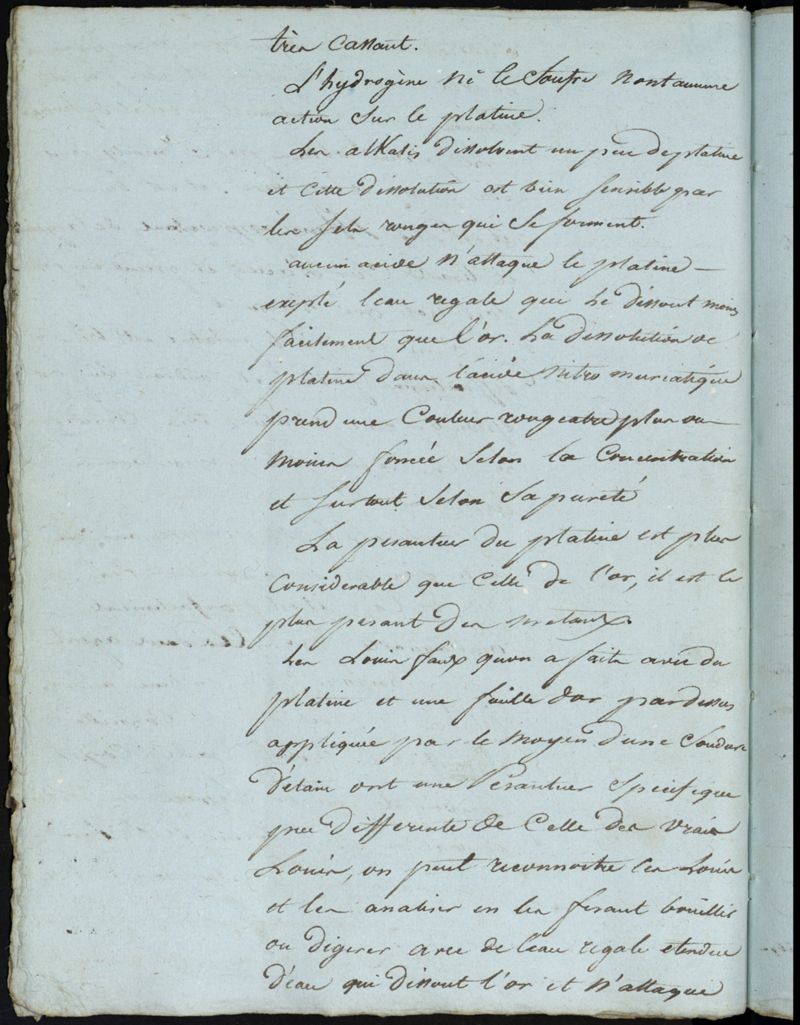 très cassant.
L'hydrogène ni le Soufre n'ont aucune
action sur le platine.
Les alkalis dissolvent un peu de platine
et cette dissolution est bien sensible par
les sels rouges qui se forment.
aucun acide n'attaque le platine —
exepté l'eau regale que le dissout moins
facilement que l'or. La dissolution de
platine dans l'acide nitro muriatique
prend une Couleur rougeatre plus ou —
moins foncée selon la Concentration
et surtout selon sa pureté
La pesanteur du platine est plus
Considerable que Celle de l'or, il est le
plus pesant des metaux.
Les Louis faux qu'on a faits avec du
platine et une feuille d'or pardessus
appliquée par le moyen d'une Soudure
d'étain ont une Pesanteur Specifique
peu differente de Celle des vrais
Louis, on peut reconnoitre ces Louis
et les analiser en les fesant bouillir
ou digerer avec de l'eau regale etendue
d'eau qui dissout l'or et n'attaque